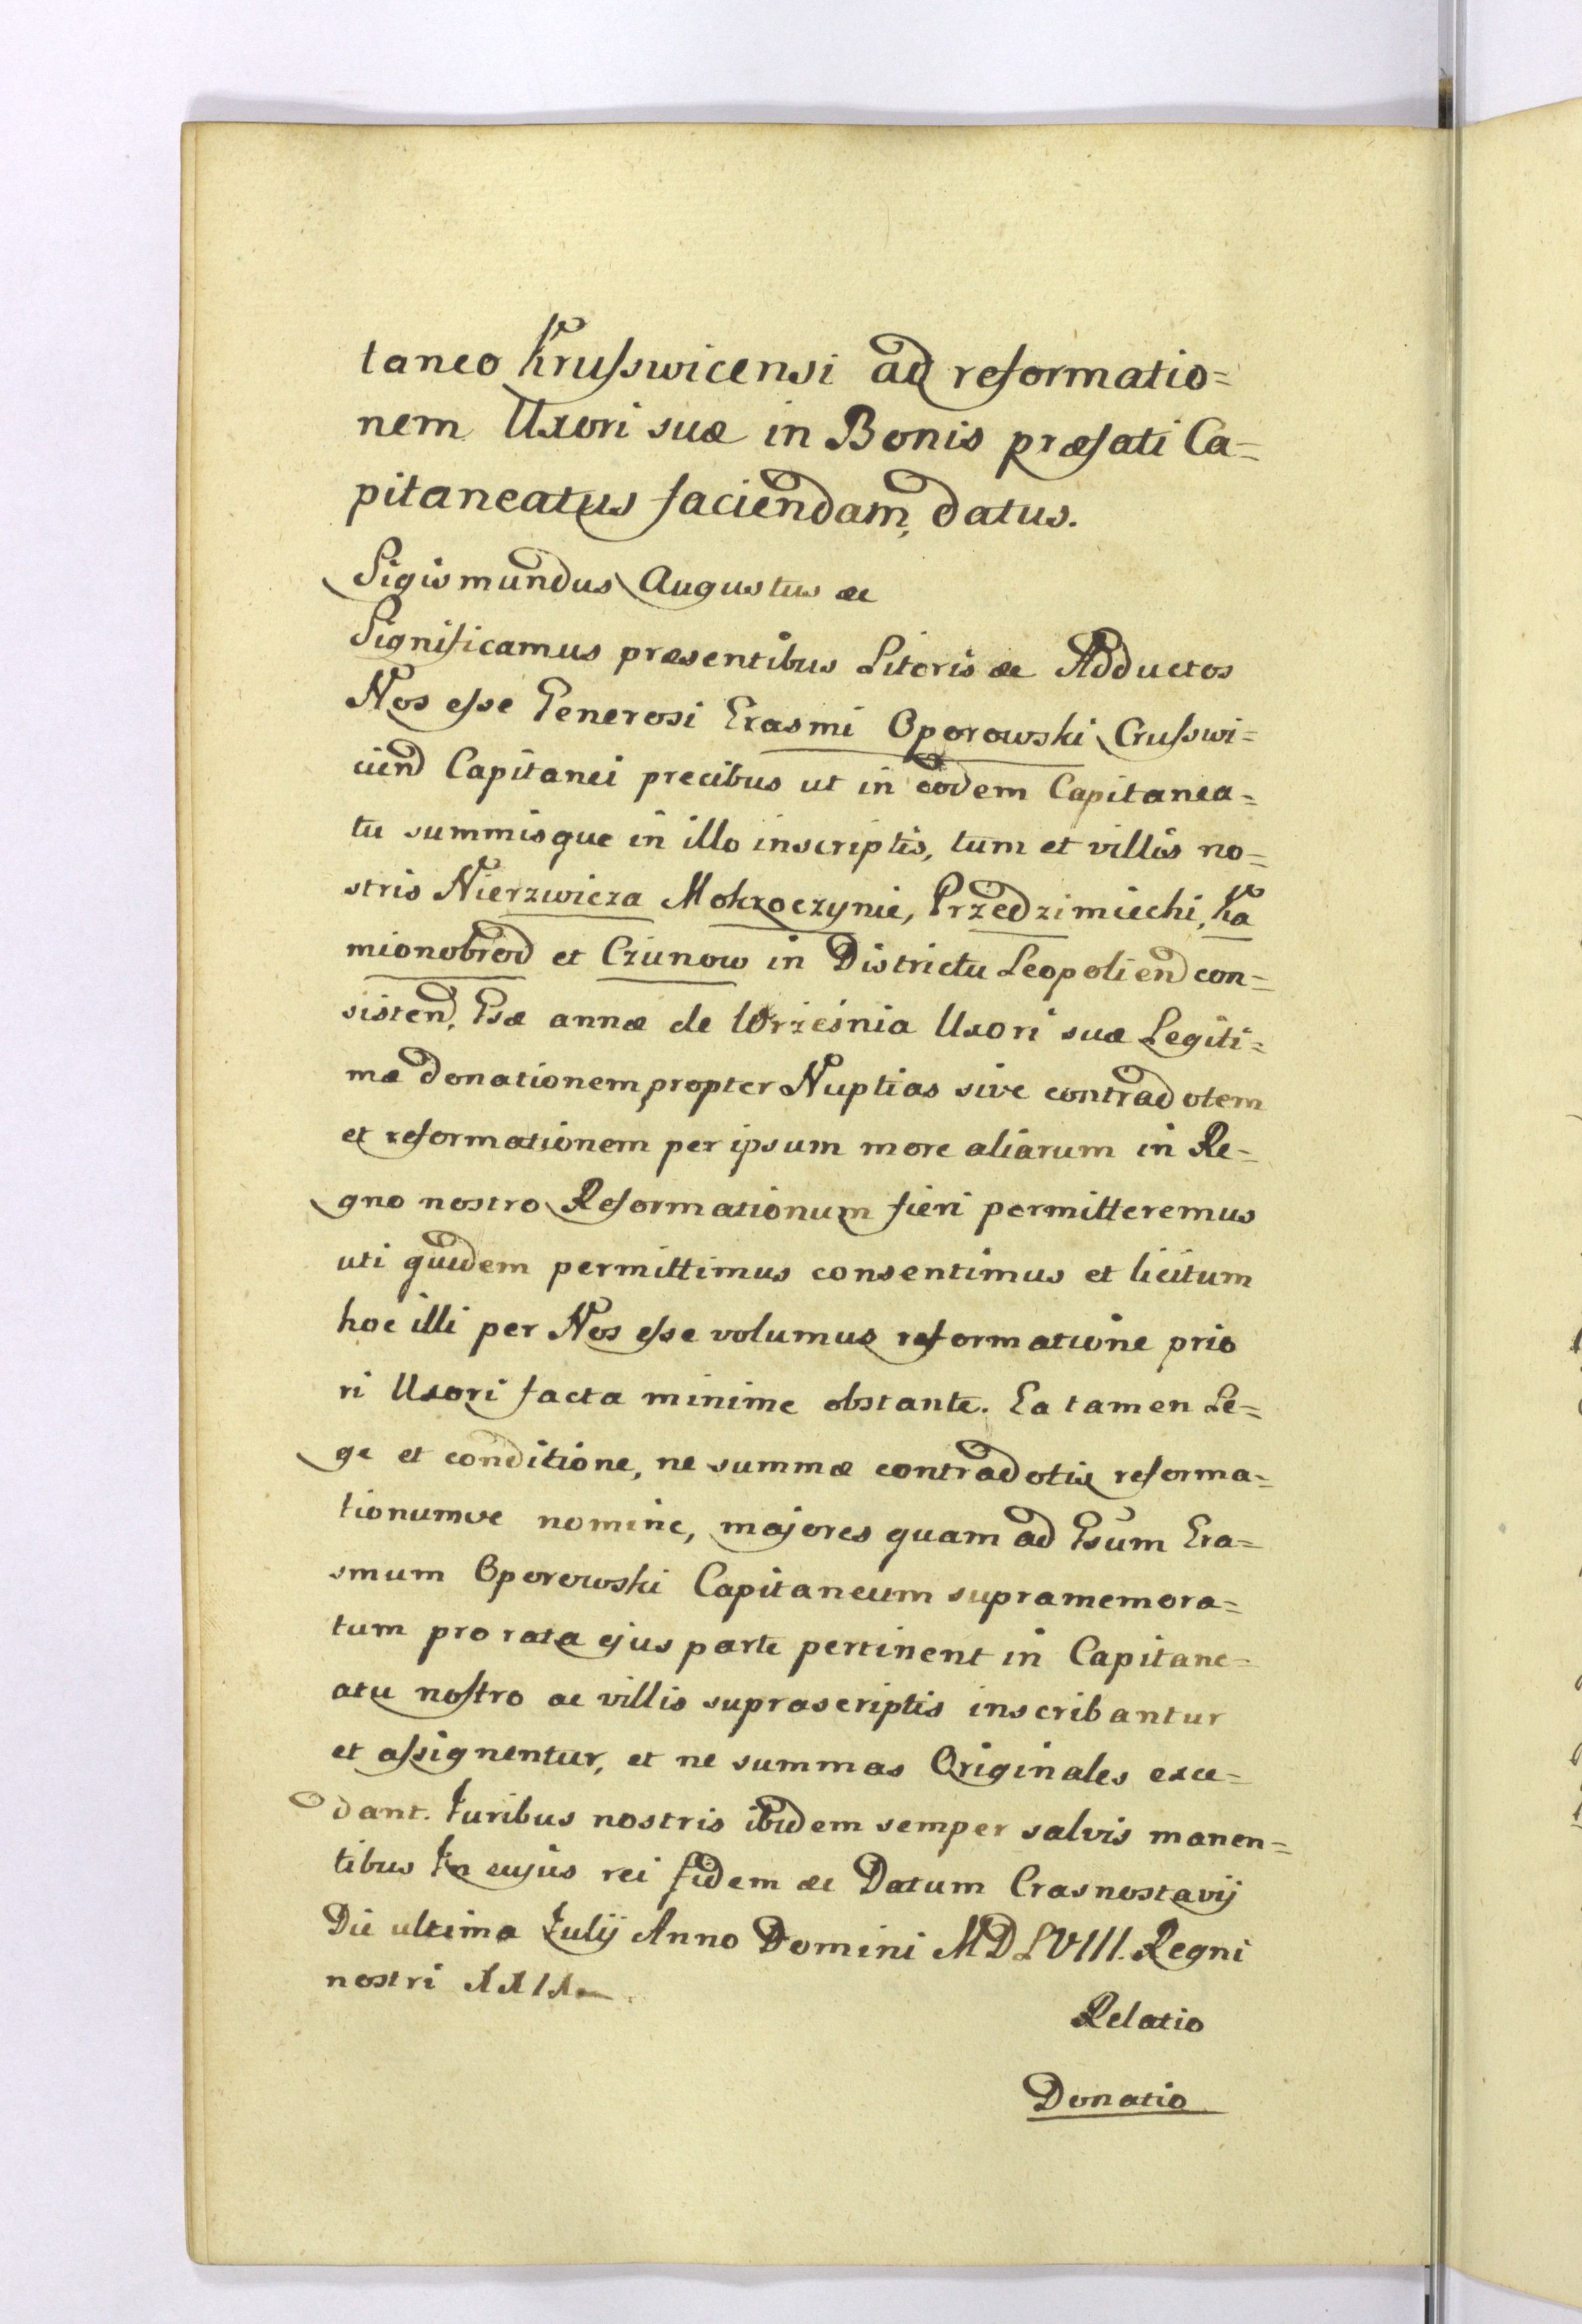 taneo Krusswicensi ad reformatio=
nem Uxori suæ in Bonis præfati Ca=
pitaneatus faciendam, datus.
Sigismundus Augustus &c
Significamus præsentibus Literis &c Adductos
Nos esse Generosi Erasmi Oporowski Crusswi=
cien Capitanei precibus ut in eodem Capitanea=
tu summisque in illo inscriptis, tum et villis no=
stris Nierzwicza Mokroczynie, Przedzimiechi, Ka
mionobrod et Czunow in Districtu Leopolien con=
sisten, Gsæ annæ de Wrzesnia Uxori suæ Legiti=
mæ donationem propter Nuptias sive contradotem
et reformationem per ipsum more aliarum in Re=
gno nostro Reformationum fieri permitteremus
uti quidem permittimus consentimus et licitum
hoc illi per Nos esse volumus reformatione prio
ri Uxori facta minime obstante. Ea tamen Le=
ge et conditione, ne summæ contradotis reforma=
tionumve nomine, majores quam ad Gsum Era=
smum Oporowski Capitaneum supramemora=
tum pro rata ejus parte pertinent in Capitane=
atu nostro ac villis suprascriptis inscribantur
et assignentur, et ne summas Originales exce=
dant. Juribus nostris ibidem semper salvis manen=
tibus In cujus rei fidem &c Datum Crasnostavij
Die ultima Julij Anno Domini MDLVIII. Regni
nostri XXIX.
Relatio
Donatio